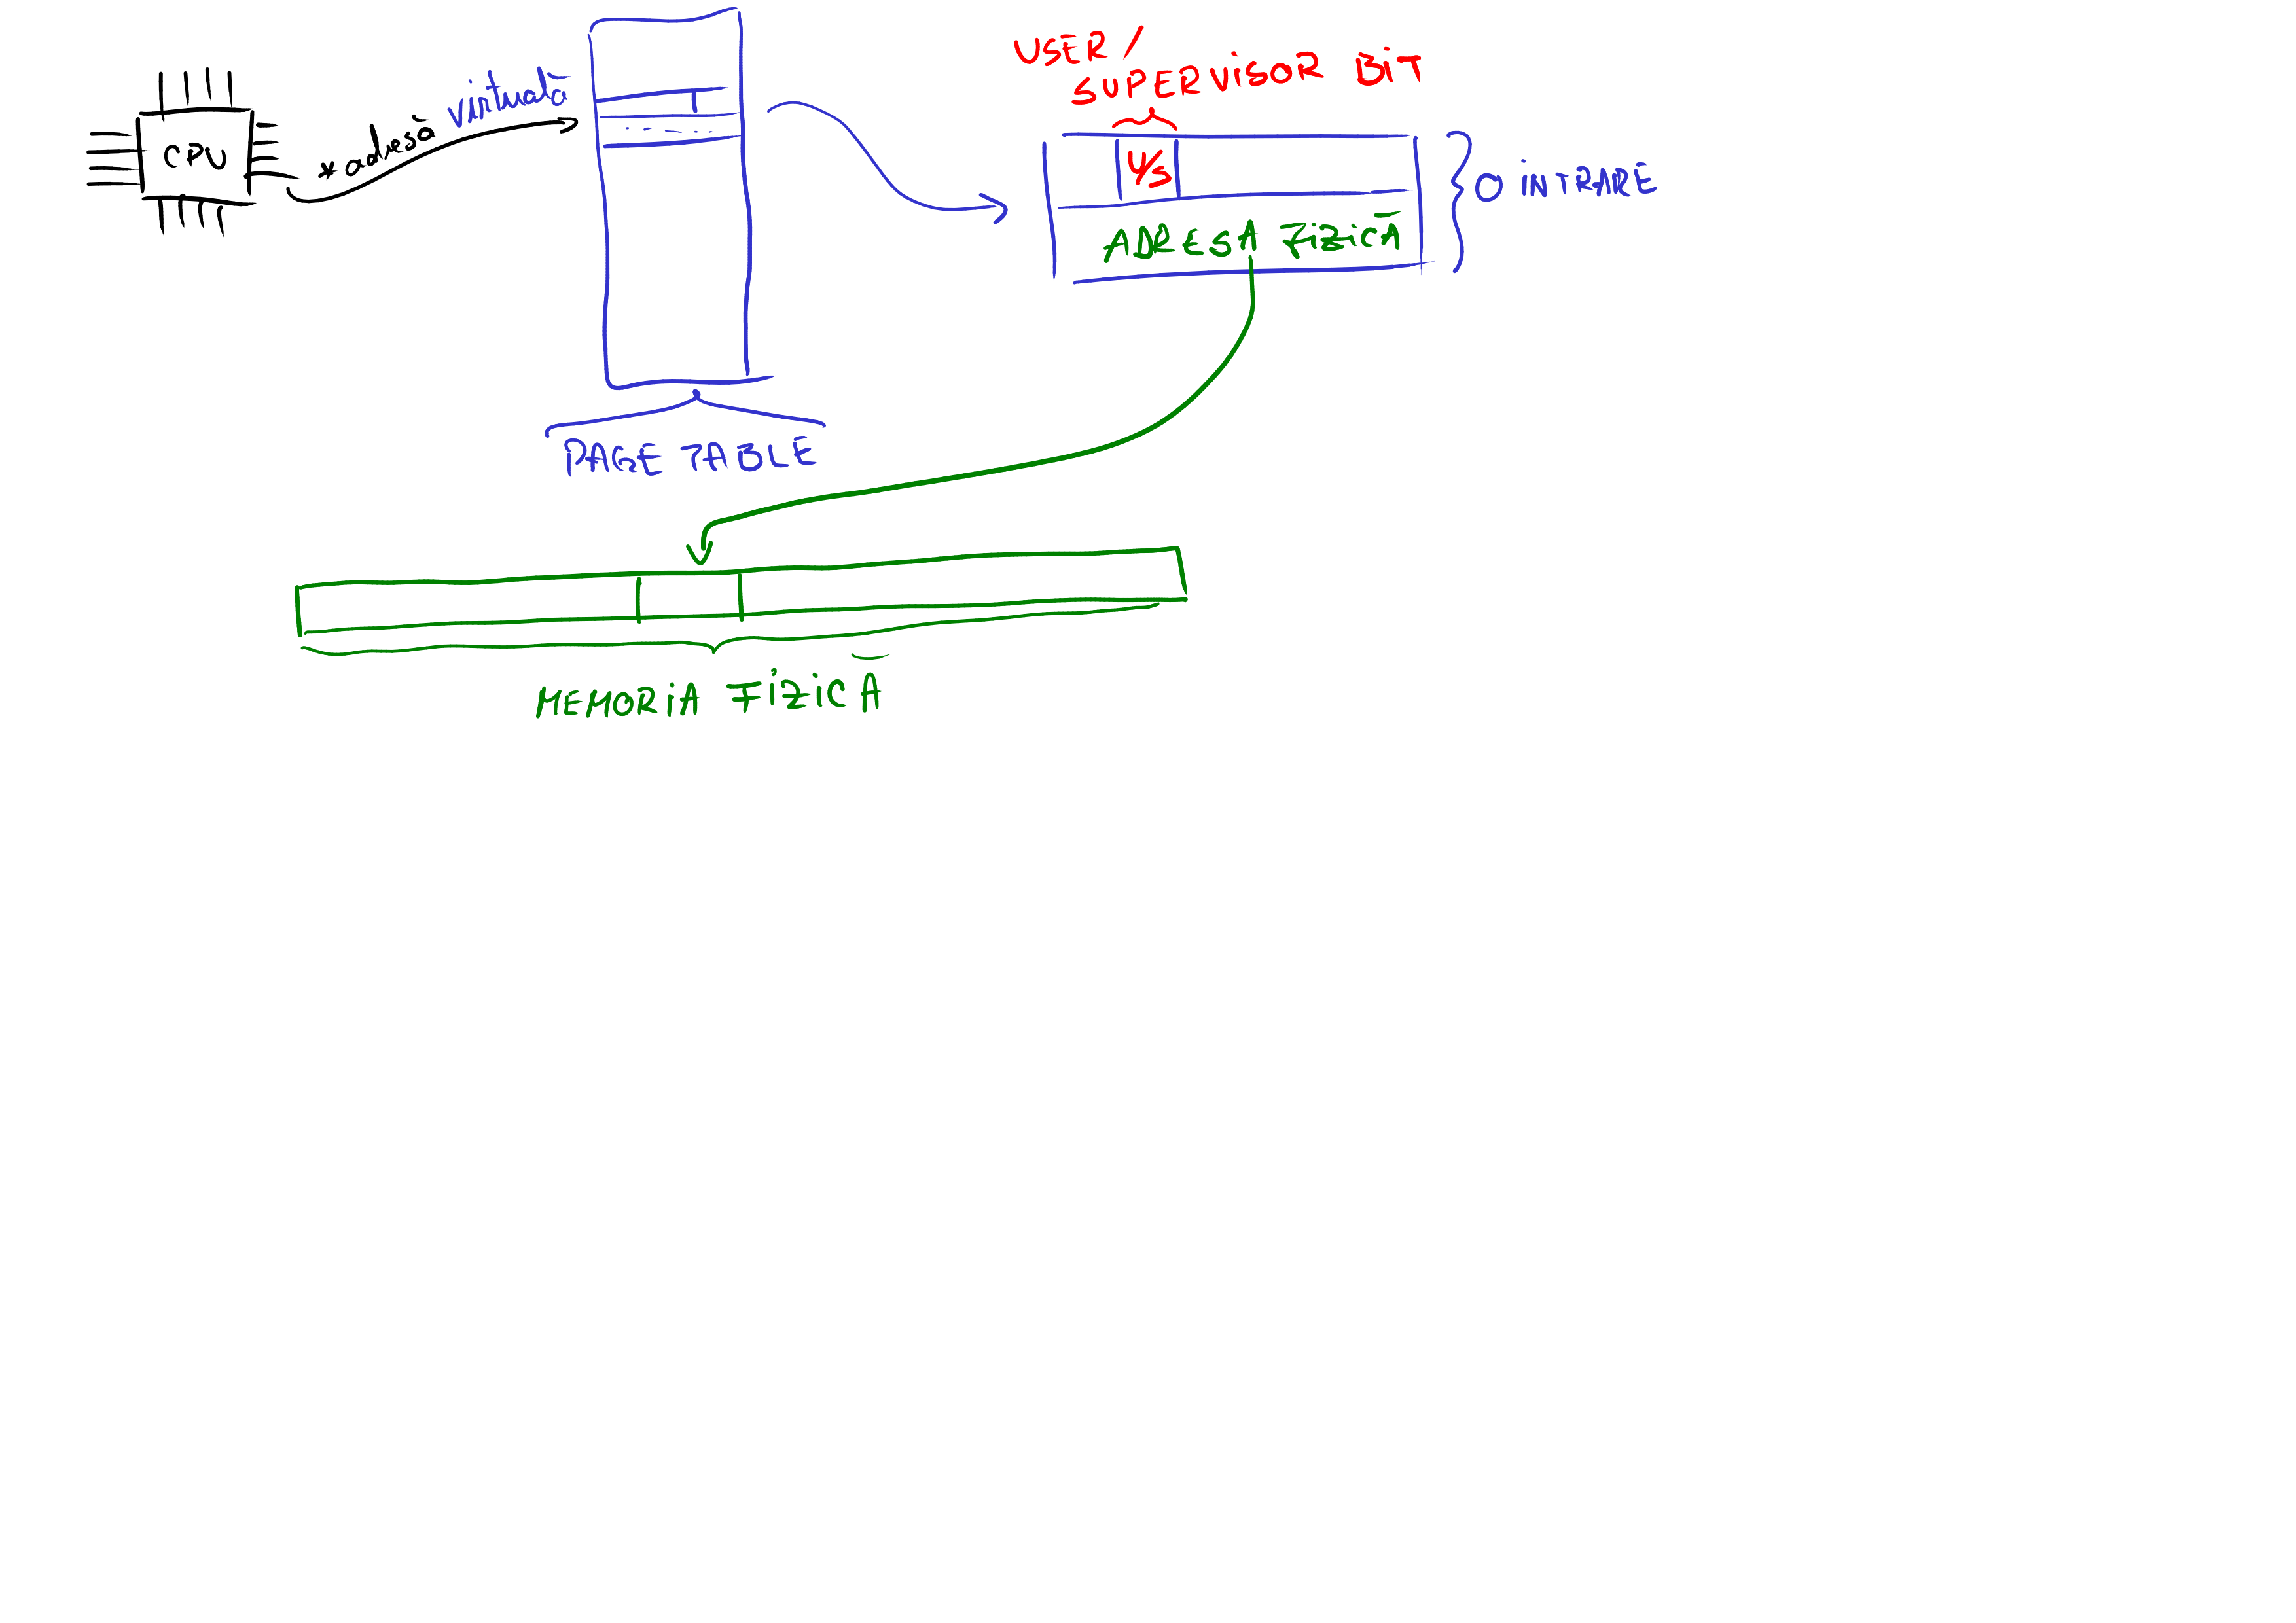 CPU
*adresă virtuală
PAGE TABLE
USER/
SUPERVISOR BIT
U/S
ADRESA FIZICĂ
O INTRARE
MEMORIA FIZICĂ